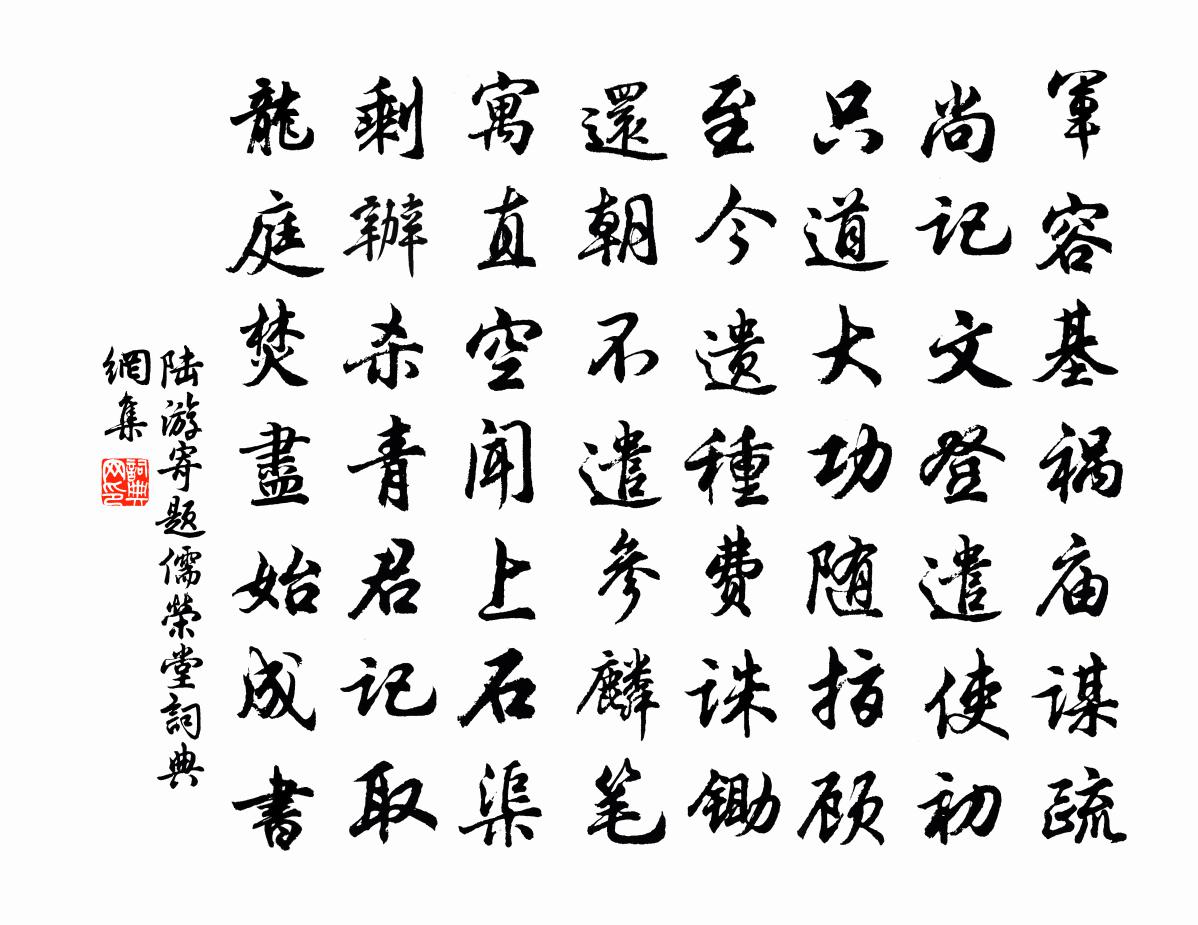 軍容基祸庙谋疏
尚记文登遣使初
只道大功随指顾
至今遗種費誅鋤
還朝不遣参麟笔
寓直空闻上石渠
剩辦杀青君记取
龍庭焚盡始成書
陆游寄题儒榮堂詞典
網集
詞典
网印